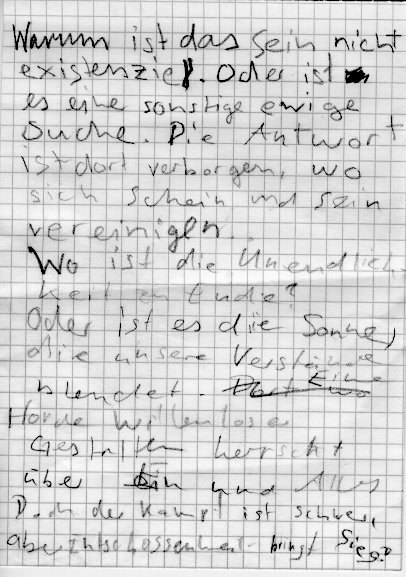 Warum ist das Sein nicht
existenziel. Oder ist
es eine sonstige ewige
Suche. Die Antwort
ist dort verborgen, wo
sich Schein und Sein
vereinigen..
Wo ist die Unendlich-
keit zu Ende?
Oder ist es die Sonne,
die unsere Verstände
blendet. Eine
Horde Willenloser
Gestalten herrscht
über Ein und Alles
Doch der Kampf ist schwer,
aber Entschlossenheit bringt Sieg?